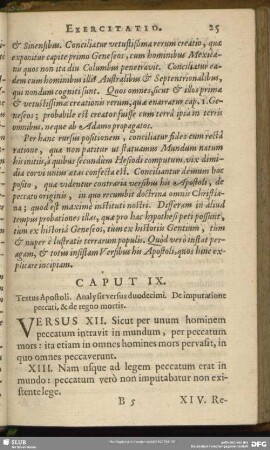 EXERCITATIO. 25
& Sinensibus. Conciliatur vetustissima rerum creatio, quæ
exponitur capite primo Geneseos, cum hominibus Mexica-
nis quos non ita diu Columbus penetravit. Conciliatur ea-
dem cum hominibus illis Australibus & Septentrionalibus,
qui nondum cogniti sunt. Quos omnes, sicut & illos prima
& vetustissima creationis rerum, quæ enarratur cap. 1. Ge-
neseos; probabile est creator fuisse cum terra ipsa in terris
omnibus, neque ab Adamo propagatos.
Per hanc rursus positionem, conciliatur fides cum recta
ratione, quæ non patitur ut statuamus Mundum natum
his initiis, à quibus secundum Hesiodi computum, vix dimi-
dia corvi unius ætas confecta est. Conciliantur demum hoc
posito, quæ videntur contraria versibus his Apostoli, de
peccato originis, in quo recumbit doctrina omnis Christia-
na; quod est maximè instituti nostri. Differam in aliud
tempus probationes illas, quæ pro hac hypothesi peti possint,
tum ex historia Geneseos, tum ex historiis Gentium, tum
& nuper è lustratis terrarum populis. Quod verò instat per-
agam, & totus insistam Versibus his Apostoli, quos hinc ex-
plicare incipiam.
CAPUT IX.
Textus Apostoli. Analysis versus duodecimi. De imputatione
peccati, & de regno mortis.
VERSUS XII. Sicut per unum hominem
peccatum intravit in mundum, per peccatum
mors: ita etiam in omnes homines mors pervasit, in
quo omnes peccaverunt.
XIII. Nam usque ad legem peccatum erat in
mundo: peccatum verò non imputabatur non exi-
stente lege.
B 5 XIV. Re-
SLUB